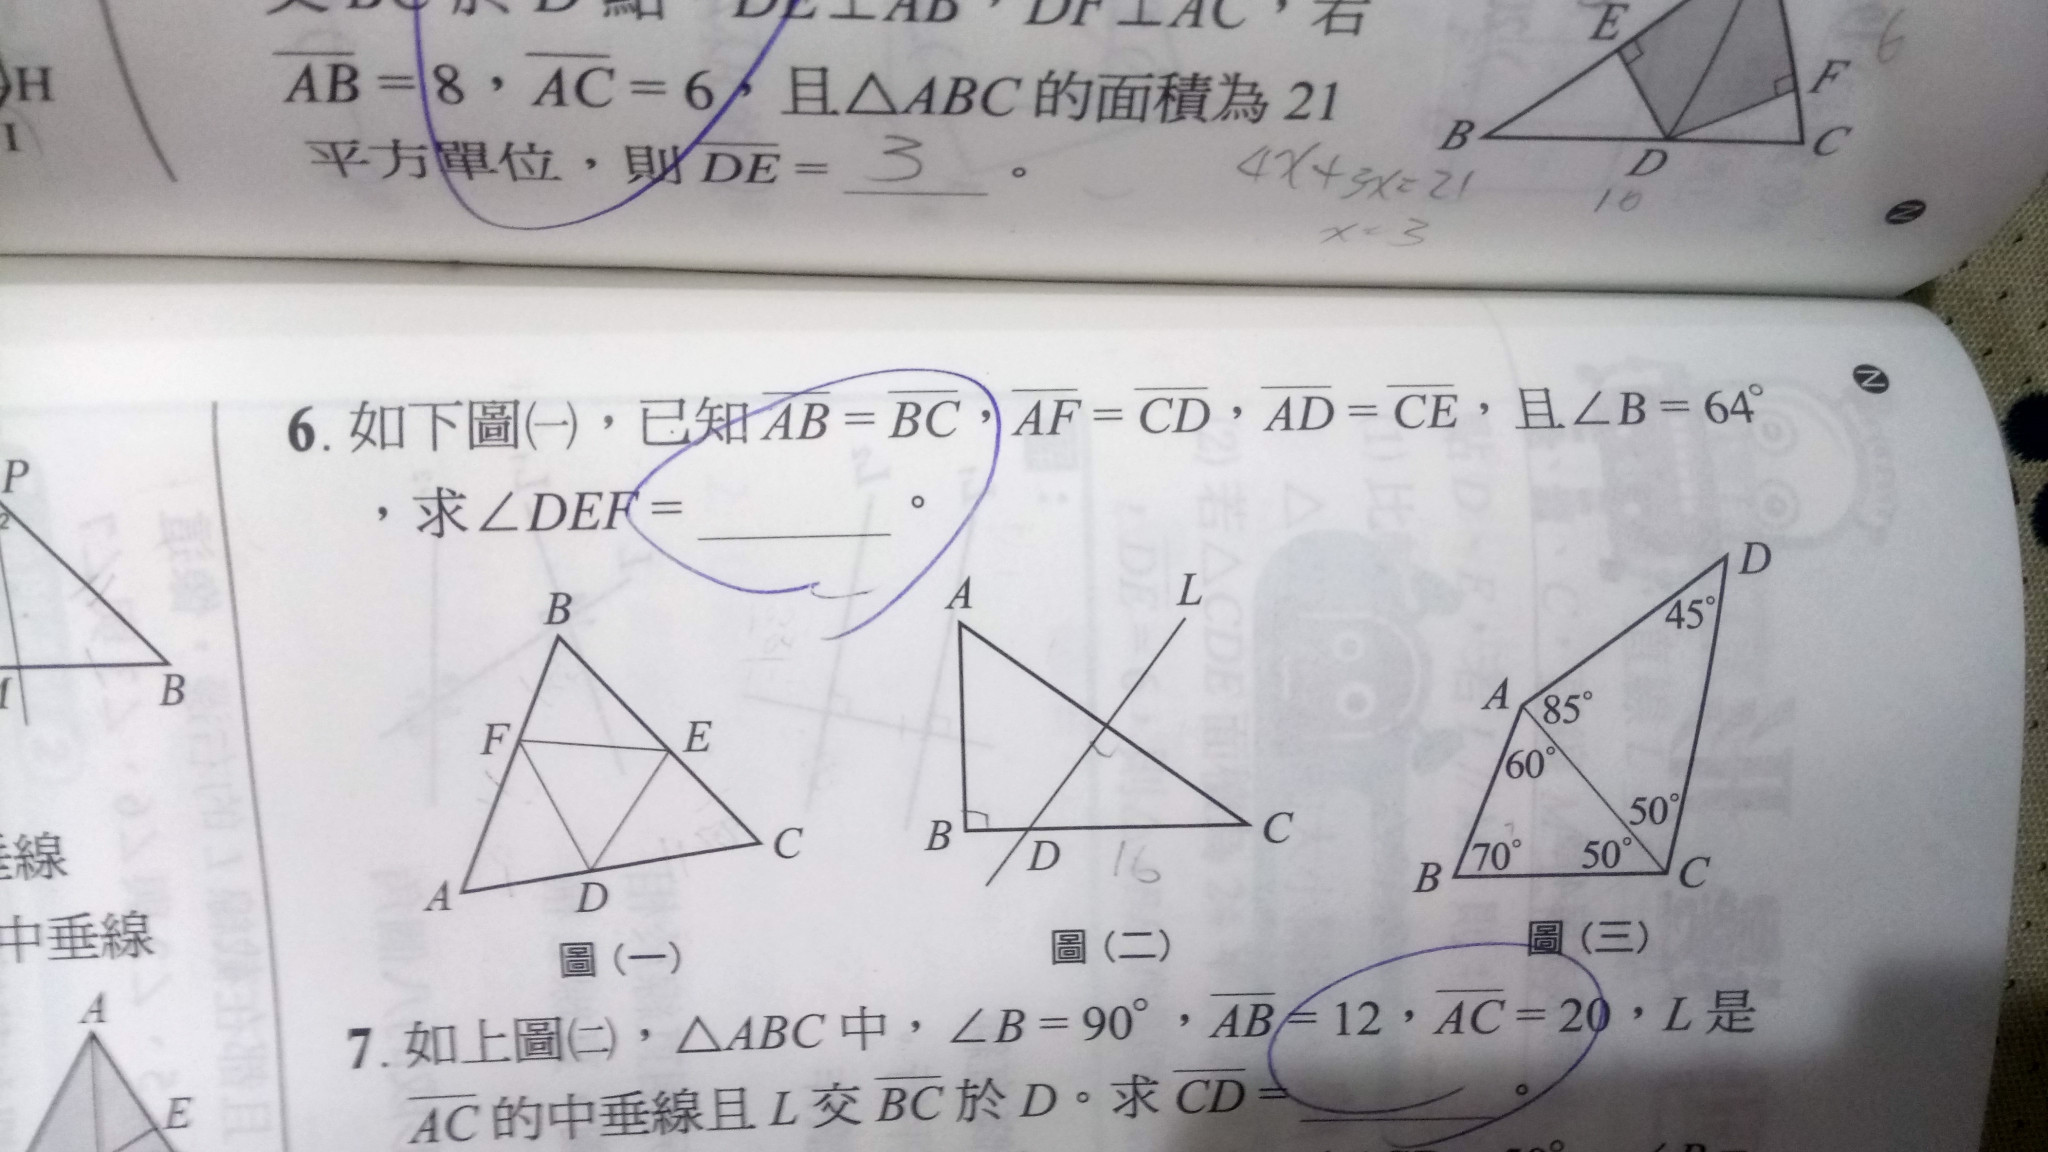 交 BC 於 D 點，DE⊥AB，DF⊥AC，若
AB = 8，AC = 6，且△ABC 的面積為 21
平方單位，則 DE = 3 。
4x+3x=21
x=3
E
F
B
D
C
10
6
H
I
N
N
6. 如下圖㈠，已知 AB = BC，AF = CD，AD = CE，且∠B = 64°
，求∠DEF = 。
P
2
B
B
F
E
A
D
C
圖 (一)
A
L
B
D
C
16
圖 (二)
D
45°
A
85°
60°
50°
70°
50°
B
C
圖 (三)
7. 如上圖㈡，△ABC 中，∠B = 90°，AB = 12，AC = 20，L 是
AC 的中垂線且 L 交 BC 於 D。求 CD = 。
垂線
中垂線
A
E